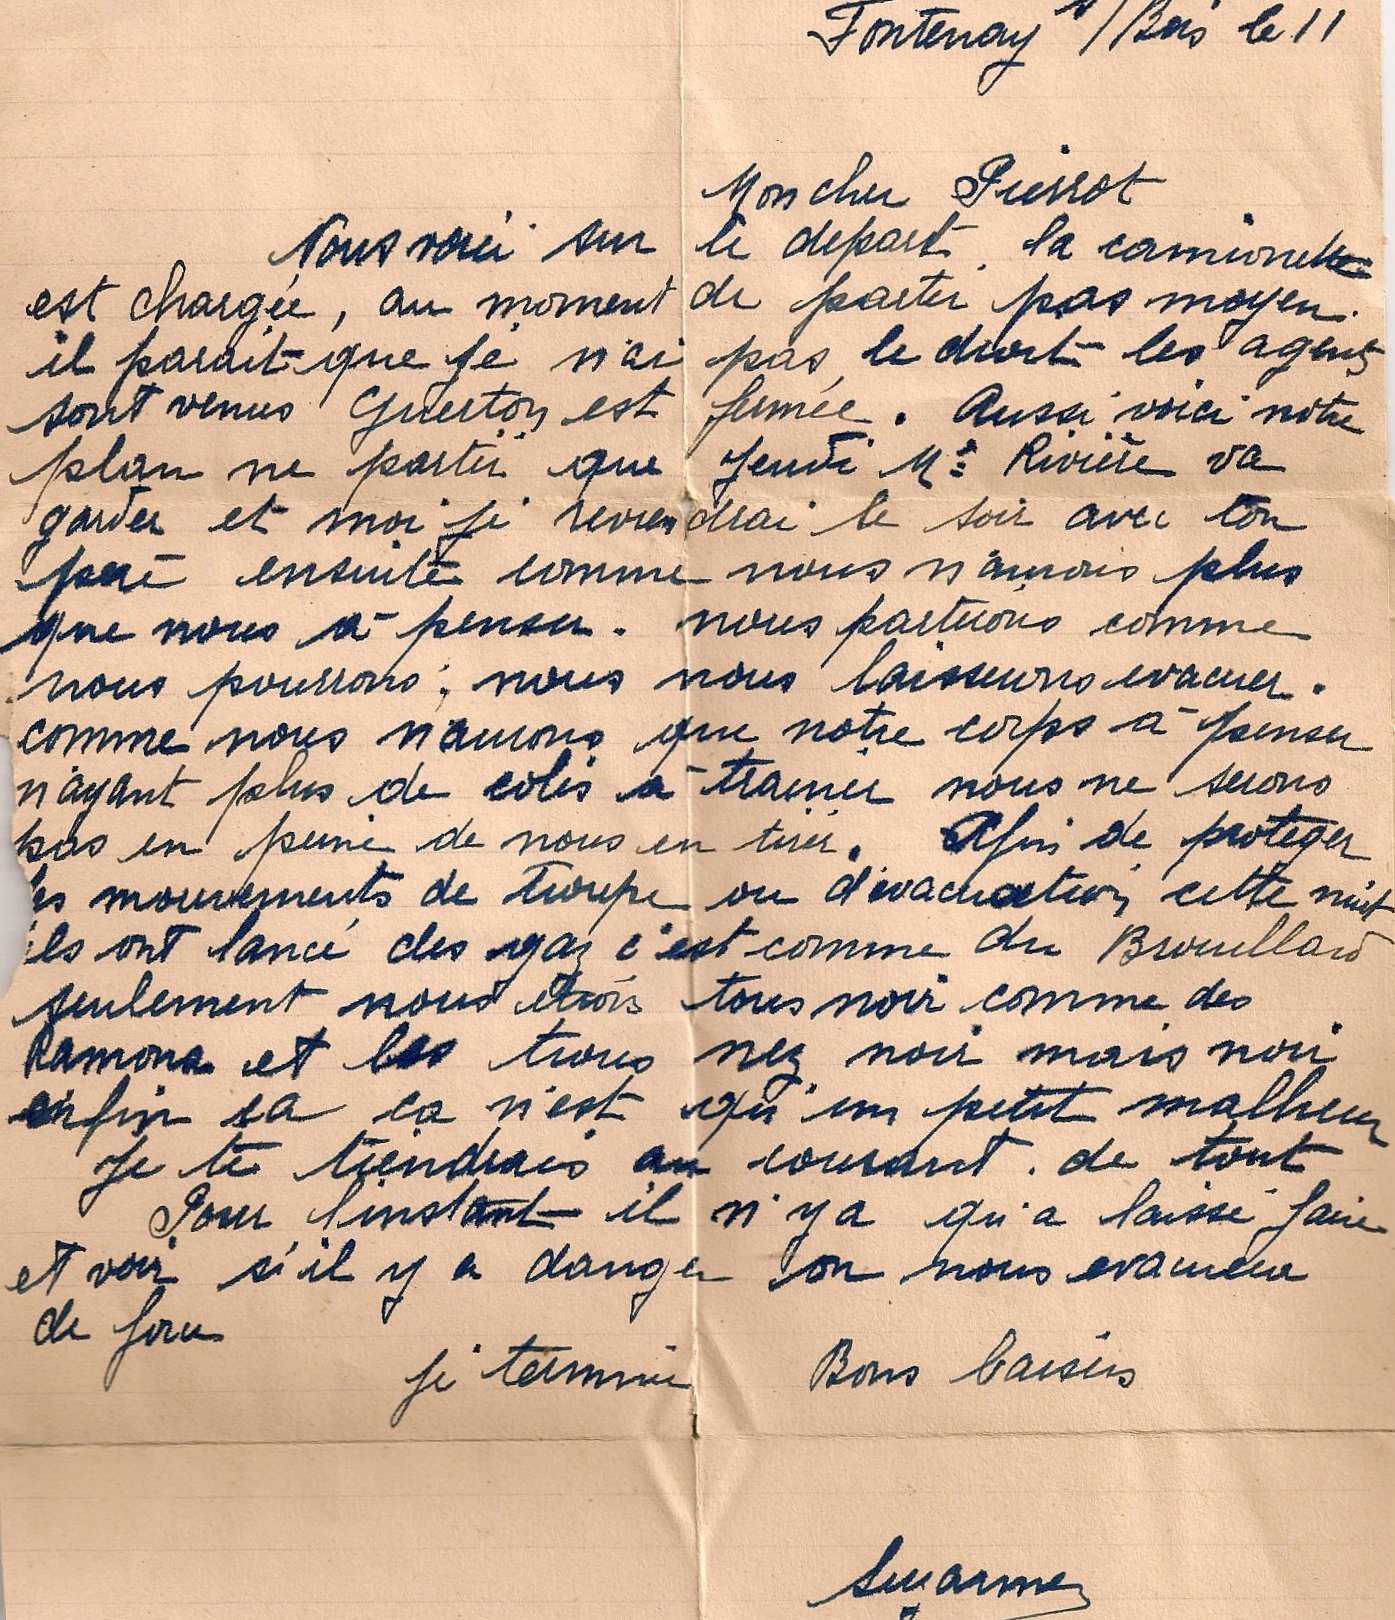 Fontenay s/Bois le 11
Mon cher Pierrot
Nous voici sur le depart la camionette
est chargée, au moment de partir pas moyen.
il parait que je n'ai pas le droit les agents
sont venus Guerton est fermée. Aussi voici notre
plan ne partir que Jeudi Mr Rivière va
garder et moi je reviendrai le soir avec ton
père ensuite comme nous n'aurons plus
que nous à penser. nous partirons comme
nous pourrons, nous nous laisserons evacuer.
comme nous n'aurons que notre corps à penser
n'ayant plus de colis à trainer nous ne serons
pas en peine de nous en tirer. Afin de proteger
les mouvements de troupe ou d'évacuation cette nuit
ils ont lancé des gaz c'est comme du Brouillard
seulement nous étions tous noir comme des
Ramona et les trous nez noir mais noir
enfin ca ca n'est qu'un petit malheur
Je te tiendrais au courant. de tout
Pour l'instant il n'y a qu'a laissé faire
et voir s'il y a danger on nous evacuera
de force
je termine Bons baisers